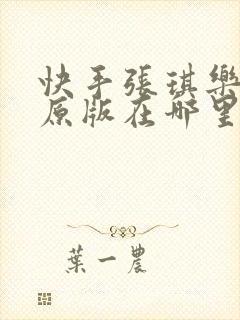 快手張琪樂
原版在哪里
葉一農